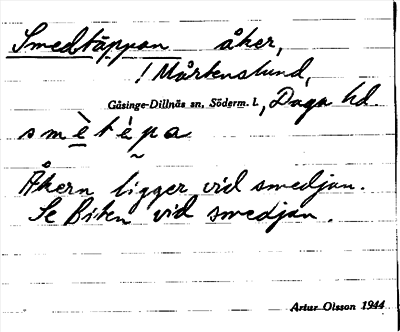 Smedtäppan åker,
! Mårtenslund,
Gåsinge-Dillnäs sn, Söderm. l., Daga hd.
smètèpa
Åkern ligger vid smedjan.
Se Biten vid smedjan.
Artur Olsson 1944